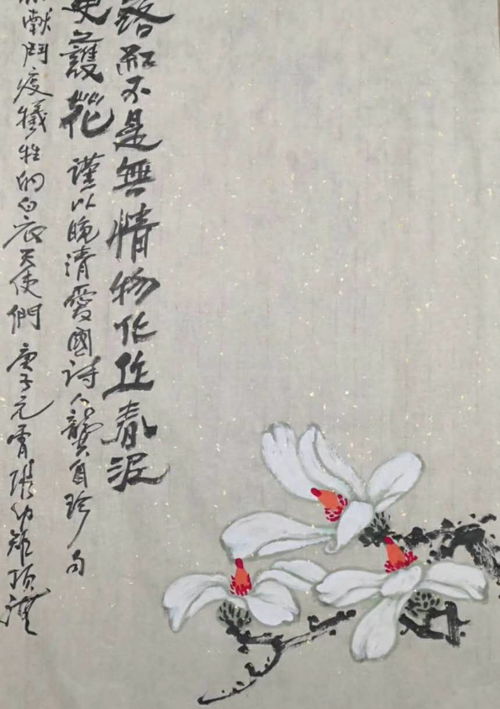 落紅不是無情物化作春泥
更護花 謹以晚清愛國詩人龔自珍句
獻鬥疫犧牲的白衣天使們 庚子元宵 頂禮